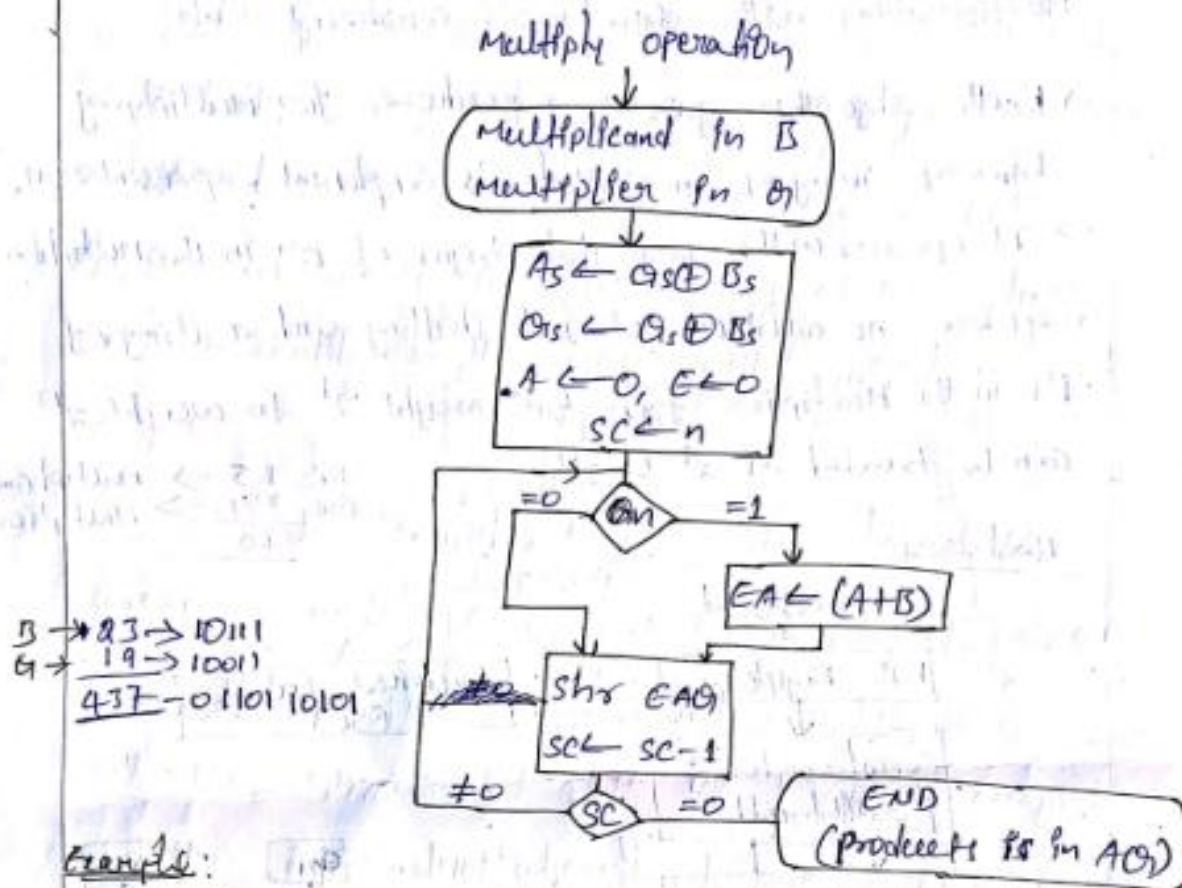 Multiply operation
Multiplicand in B
Multiplier in Q
As ← Qs ⊕ Bs
Qs ← Qs ⊕ Bs
A ← 0, E ← 0
SC ← n
=0 Qn =1
EA ← (A+B)
B → 23 → 10111
Q → 19 → 10011
437 - 01101 10101
Shr EAQ
SC ← SC-1
≠0 SC =0
END
(products is in AQ)
Example: